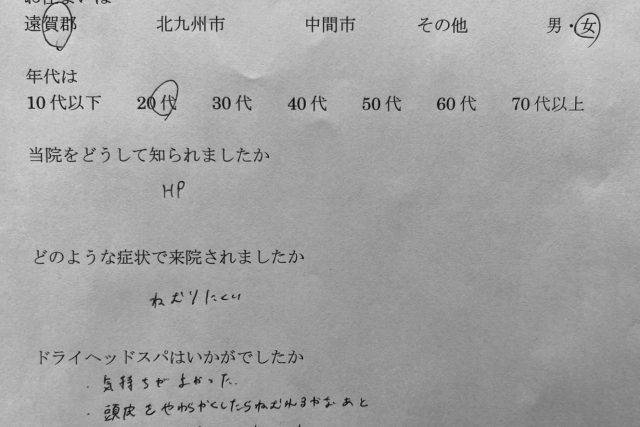 お住まいは
遠賀郡 北九州市 中間市 その他 男・女
年代は
10代以下 20代 30代 40代 50代 60代 70代以上
当院をどうして知られましたか
HP
どのような症状で来院されましたか
ねむりにくい
ドライヘッドスパはいかがでしたか
・気持ちがよかった。
・頭皮をやわらかくしたらねむれるかなあと